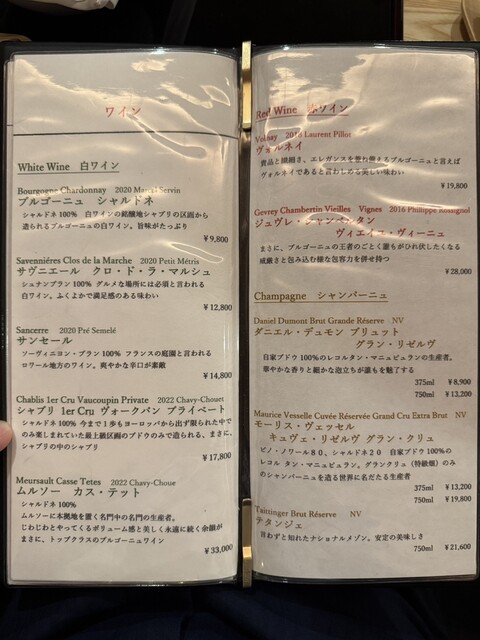 ワイン
White Wine 白ワイン
Bourgogne Chardonnay 2020 Marcel Servin
ブルゴーニュ シャルドネ
シャルドネ 100% 白ワインの銘醸地シャブリの区画から
造られるブルゴーニュの白ワイン。旨味がたっぷり
￥9,800
Savennières Clos de la Marche 2020 Petit Métris
サヴニエール クロ・ド・ラ・マルシュ
シュナンブラン 100% グルメな場所には必須と言われる
白ワイン。ふくよかで満足感のある味わい
￥12,800
Sancerre 2020 Pré Semelé
サンセール
ソーヴィニヨン・ブラン 100% フランスの庭園と言われる
ロワール地方のワイン。爽やかな辛口が素敵
￥14,800
Chablis 1er Cru Vaucoupin Private 2022 Chavy-Chouet
シャブリ 1er Cru ヴォークパン プライベート
シャルドネ 100% 今まで1歩もヨーロッパから出ず限られた中で
のみ楽しまれていた最上級区画のブドウのみで造られる、まさに、
シャブリの中のシャブリ
￥17,800
Meursault Casse Tetes 2022 Chavy-Choue
ムルソー カス・テット
シャルドネ 100%
ムルソーに本拠地を置く名門中の名門の生産者。
じわじわとやってくるボリューム感と美しく永遠に続く余韻が
まさに、トップクラスのブルゴーニュワイン
￥33,000
Red Wine 赤ワイン
Volnay 2018 Laurent Pillot
ヴォルネイ
気品と繊細さ、エレガンスを兼ね備えるブルゴーニュと言えば
ヴォルネイであると言わしめる美しい味わい
￥19,800
Gevrey Chambertin Vieilles Vignes 2016 Philippe Rossignol
ジュヴレ・シャンベルタン
ヴィエイユ・ヴィーニュ
まさに、ブルゴーニュの王者のごとく誰もがひれ伏したくなる
威厳さと包み込む様な包容力を併せ持つ
￥28,000
Champagne シャンパーニュ
Daniel Dumont Brut Grande Réserve NV
ダニエル・デュモン ブリュット
グラン・リゼルヴ
自家ブドウ 100%のレコルタン・マニュピュランの生産者。
華やかな香りと細かな泡立ちが誰もを魅了する
375ml ￥8,900
750ml ￥13,200
Maurice Vesselle Cuvée Réservée Grand Cru Extra Brut NV
モーリス・ヴェッセル
キュヴェ・リゼルヴ グラン・クリュ
ピノ・ノワール80、シャルドネ20 自家ブドウ 100%の
レコル タン・マニュピュラン。グランクリュ（特級畑）のみ
のシャンパーニュを造る世界に名だたる生産者
375ml ￥13,200
750ml ￥19,800
Taittinger Brut Réserve NV
テタンジェ
言わずと知れたナショナルメゾン。安定の美味しさ
750ml ￥21,600